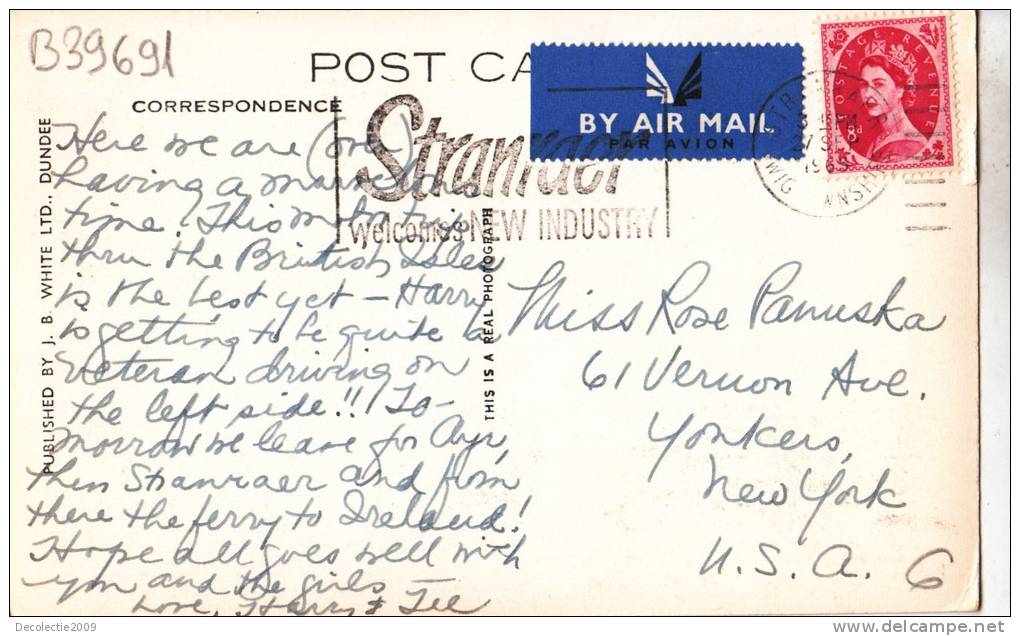 B39691
POST CA
CORRESPONDENCE
BY AIR MAIL
PAR AVION
POSTAGE REVENUE
8d
Stranraer
welcomes NEW INDUSTRY
STRANRAER
WIG NSH
PUBLISHED BY J. B. WHITE LTD., DUNDEE
THIS IS A REAL PHOTOGRAPH
Here we are (one)
having a marvelous
time! This motor trip
thru the British Isles
is the best yet – Harry
is getting to be quite a
veteran driving on
the left side!! To-
morrow we leave for Ayr,
then Stranraer and from
there the ferry to Ireland!
Hope all goes well with
you and the girls
Love, Harry &
Miss Rose Panuska
61 Vernon Ave.
Yonkers,
New York
U.S.A.
6
Decolectie2009
www.delcampe.net